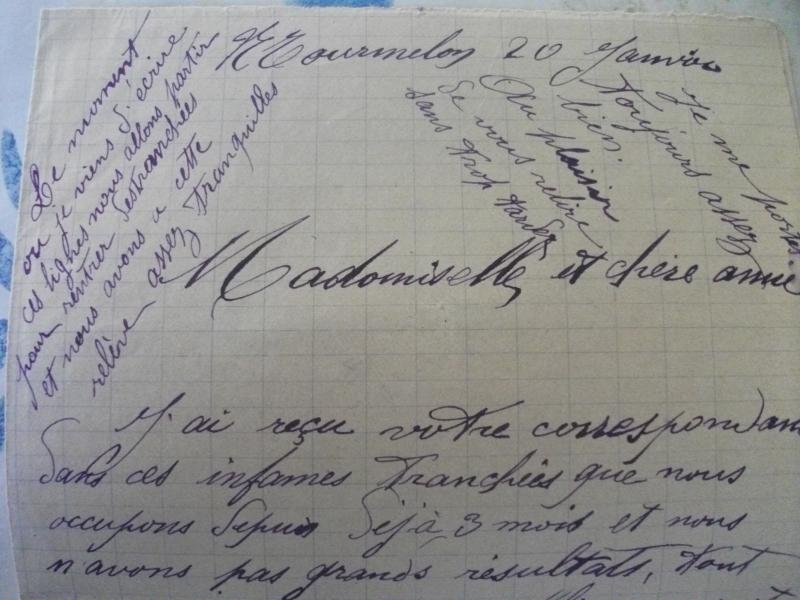 Mourmelon 20 Janvier
Le moment
ou je viens d'écrire
ces lignes nous allons partir
pour rentrer des tranchées
et nous avons a cette
relève assez tranquilles
Je me portes
toujours assez
bien.
Au plaisir
de vous relire
sans trop tarder
Madomiselle et chère amie
J'ai reçu votre correspondan
dans ces infames tranchées que nous
occupons depuis déjà 3 mois et nous
n'avons pas grands résultats, tout